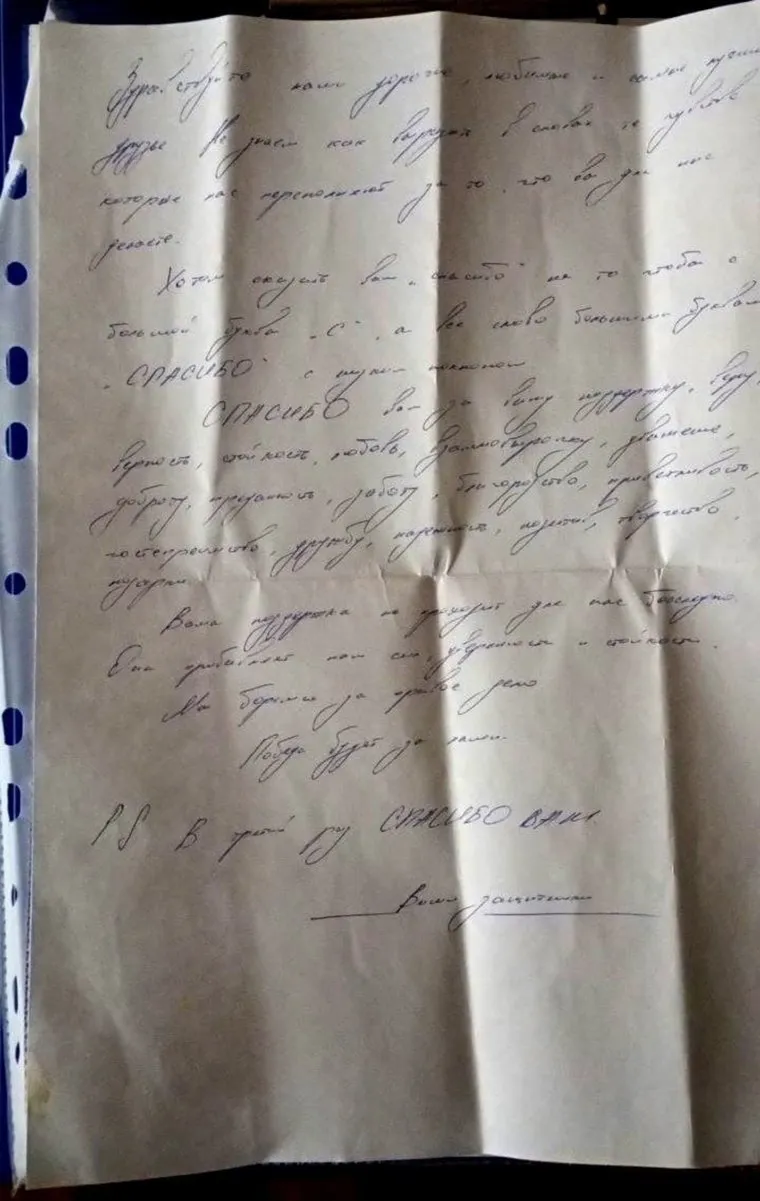 Здравствуйте наши дорогие, любимые и самые лучшие
друзья Не знаем как выразить в словах те чувства
которые нас переполняют за то, что вы для нас
делаете.
Хотим сказать вам „спасибо" не то чтобы с
большой буквы „С", а все слово большими буквами
„СПАСИБО" с
СПАСИБО вам за вашу поддержку, веру,
верность, стойкость, любовь, взаимовыручку, уважение,
доброту, преданность, заботу, благородство, приветливость,
гостеприимство, дружбу, надежность, позитив, творчество,
подарки.
Ваша поддержка не проходит для нас бесследно.
Она прибавляет нам сил, уверенности и стойкости.
Мы боремся за правое дело
Победа будет за нами.
PS В третий раз СПАСИБО ВАМ.
Ваши защитники